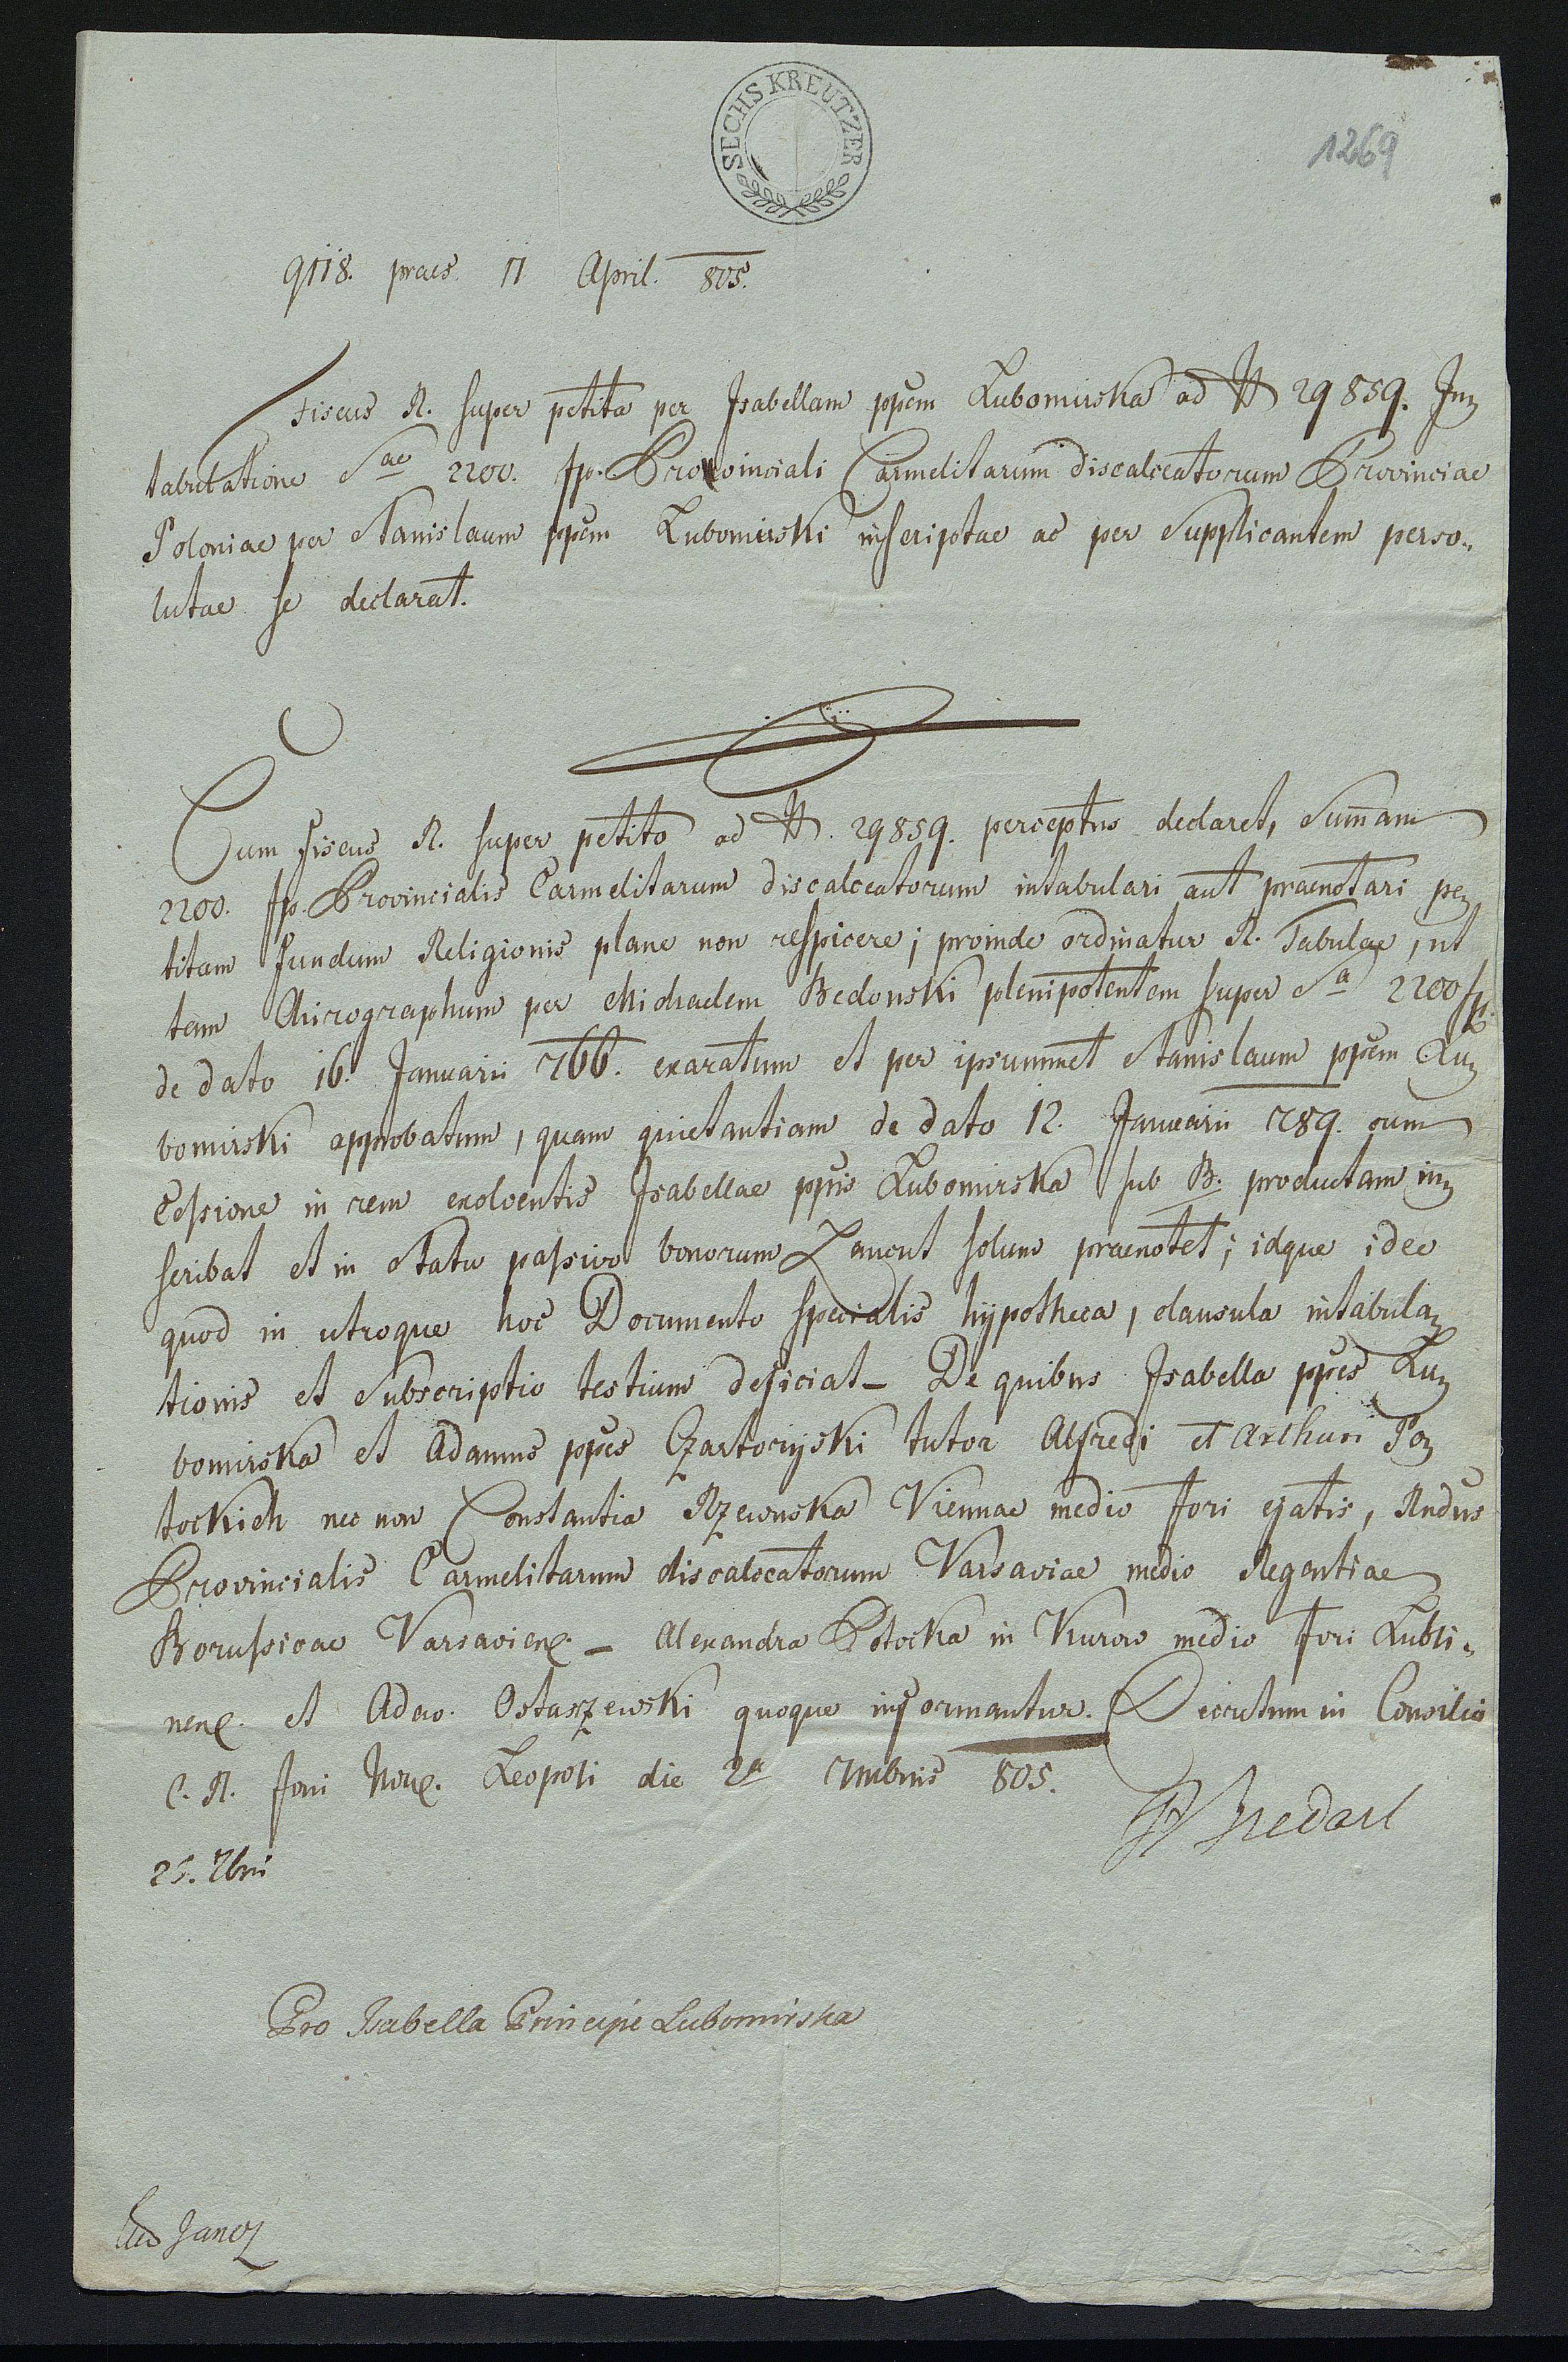 SECHS KREUTZER
1269
9118. praes. 11 April. 805.
Fiscus R. super petita per Isabellam ppem Lubomirska ad N 29859. In
tabulatione Sae 2200. fp. Provinciali Carmelitarum discalceatorum Provinciae
Poloniae per Stanislaum ppem Lubomirski inscriptae ac per Supplicantem perso
lutae se declarat.
Cum Fiscus R. super petito ad N. 29859. perceptus declaret, Summam
2200. fp. Provincialis Carmelitarum discalceatorum intabulari aut praenotari pe
titam Fundum Religionis plane non respicere; proinde ordinatur R. Tabulae, ut
tam Chirographum per Michaelem Bedonski plenipotentem super Sa 2200 fp.
de dato 16. Januarii 766. exaratum et per ipsummet Stanislaum ppem Lu
bomirski approbatum, quam quietantiam de dato 12. Januarii 789. cum
Cessione in rem exolventis Isabellae ppis Lubomirska sub B. productam in
scribat et in Statu passivo bonorum Lancut solum praenotet; idque ideo
quod in utroque hoc Documento specialis hypotheca, clausula intabula
tionis et Subscriptio testium deficiat_ De quibus Isabella ppes Lu
bomirska et Adamus ppes Czartoryski tutor Alfredi et Arthuri Po
tockich nec non Constantia Rzewuska Viennae medio Fori ejatis, Rndus
Provincialis Carmelitarum discalceatorum Varsaviae medio Regentiae
Borussicae Varsavien. _ Alexandra Potocka in Kurow medio Fori Lubli
nen. et Advo. Ostaszewski quoque informantur. Decretum in Consilio
C. R. Fori Leopoli die 2a 805.
25. 7bri
Pro Isabella Principe Lubomirska